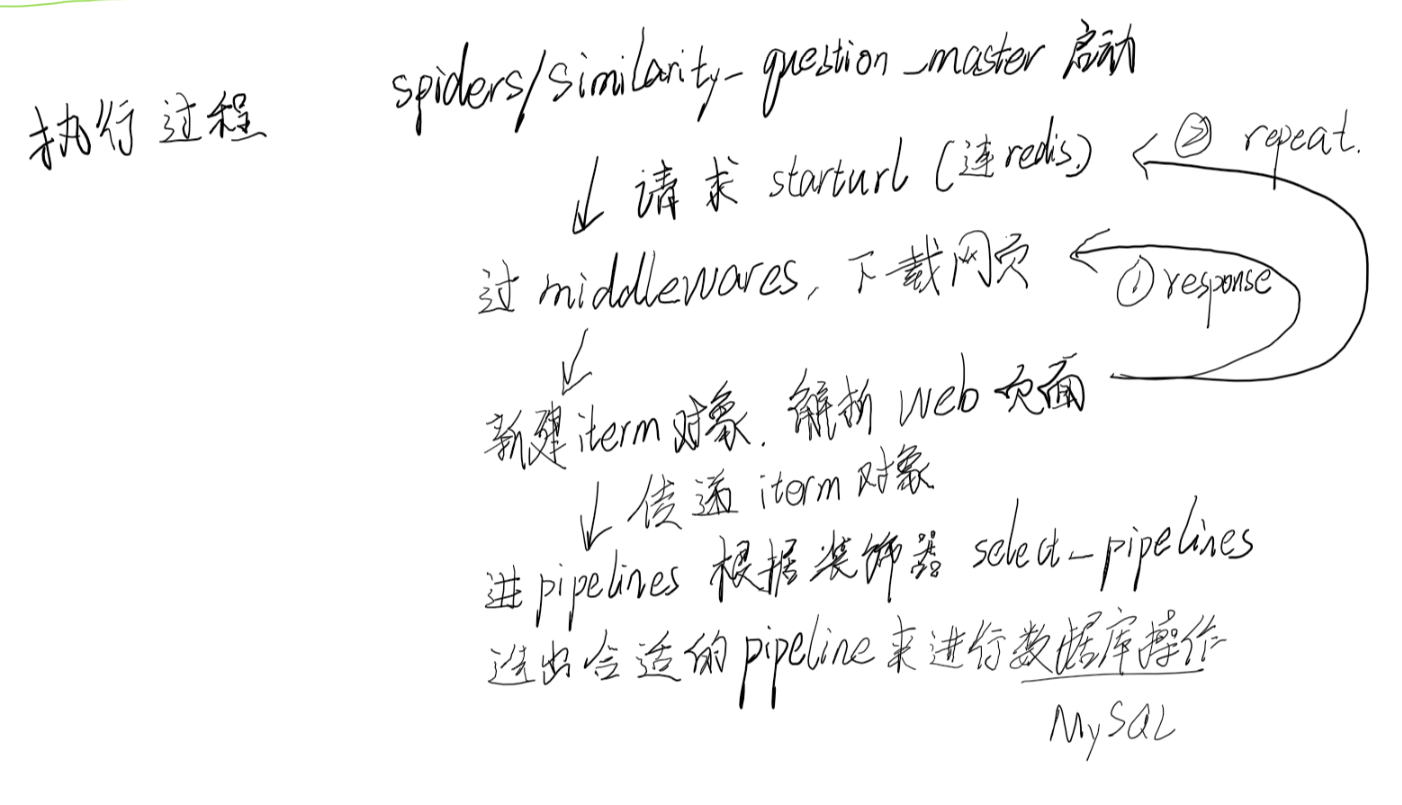 spiders/similarity_question_master 启动
执行过程
请求 starturl (连redis)
② repeat.
过 middlewares, 下载网页
① response
新建 iterm 对象. 解析 web 页面
传递 iterm 对象
进 pipelines 根据装饰器 select_pipelines
选出合适的 pipeline 来进行数据库操作
MySQL